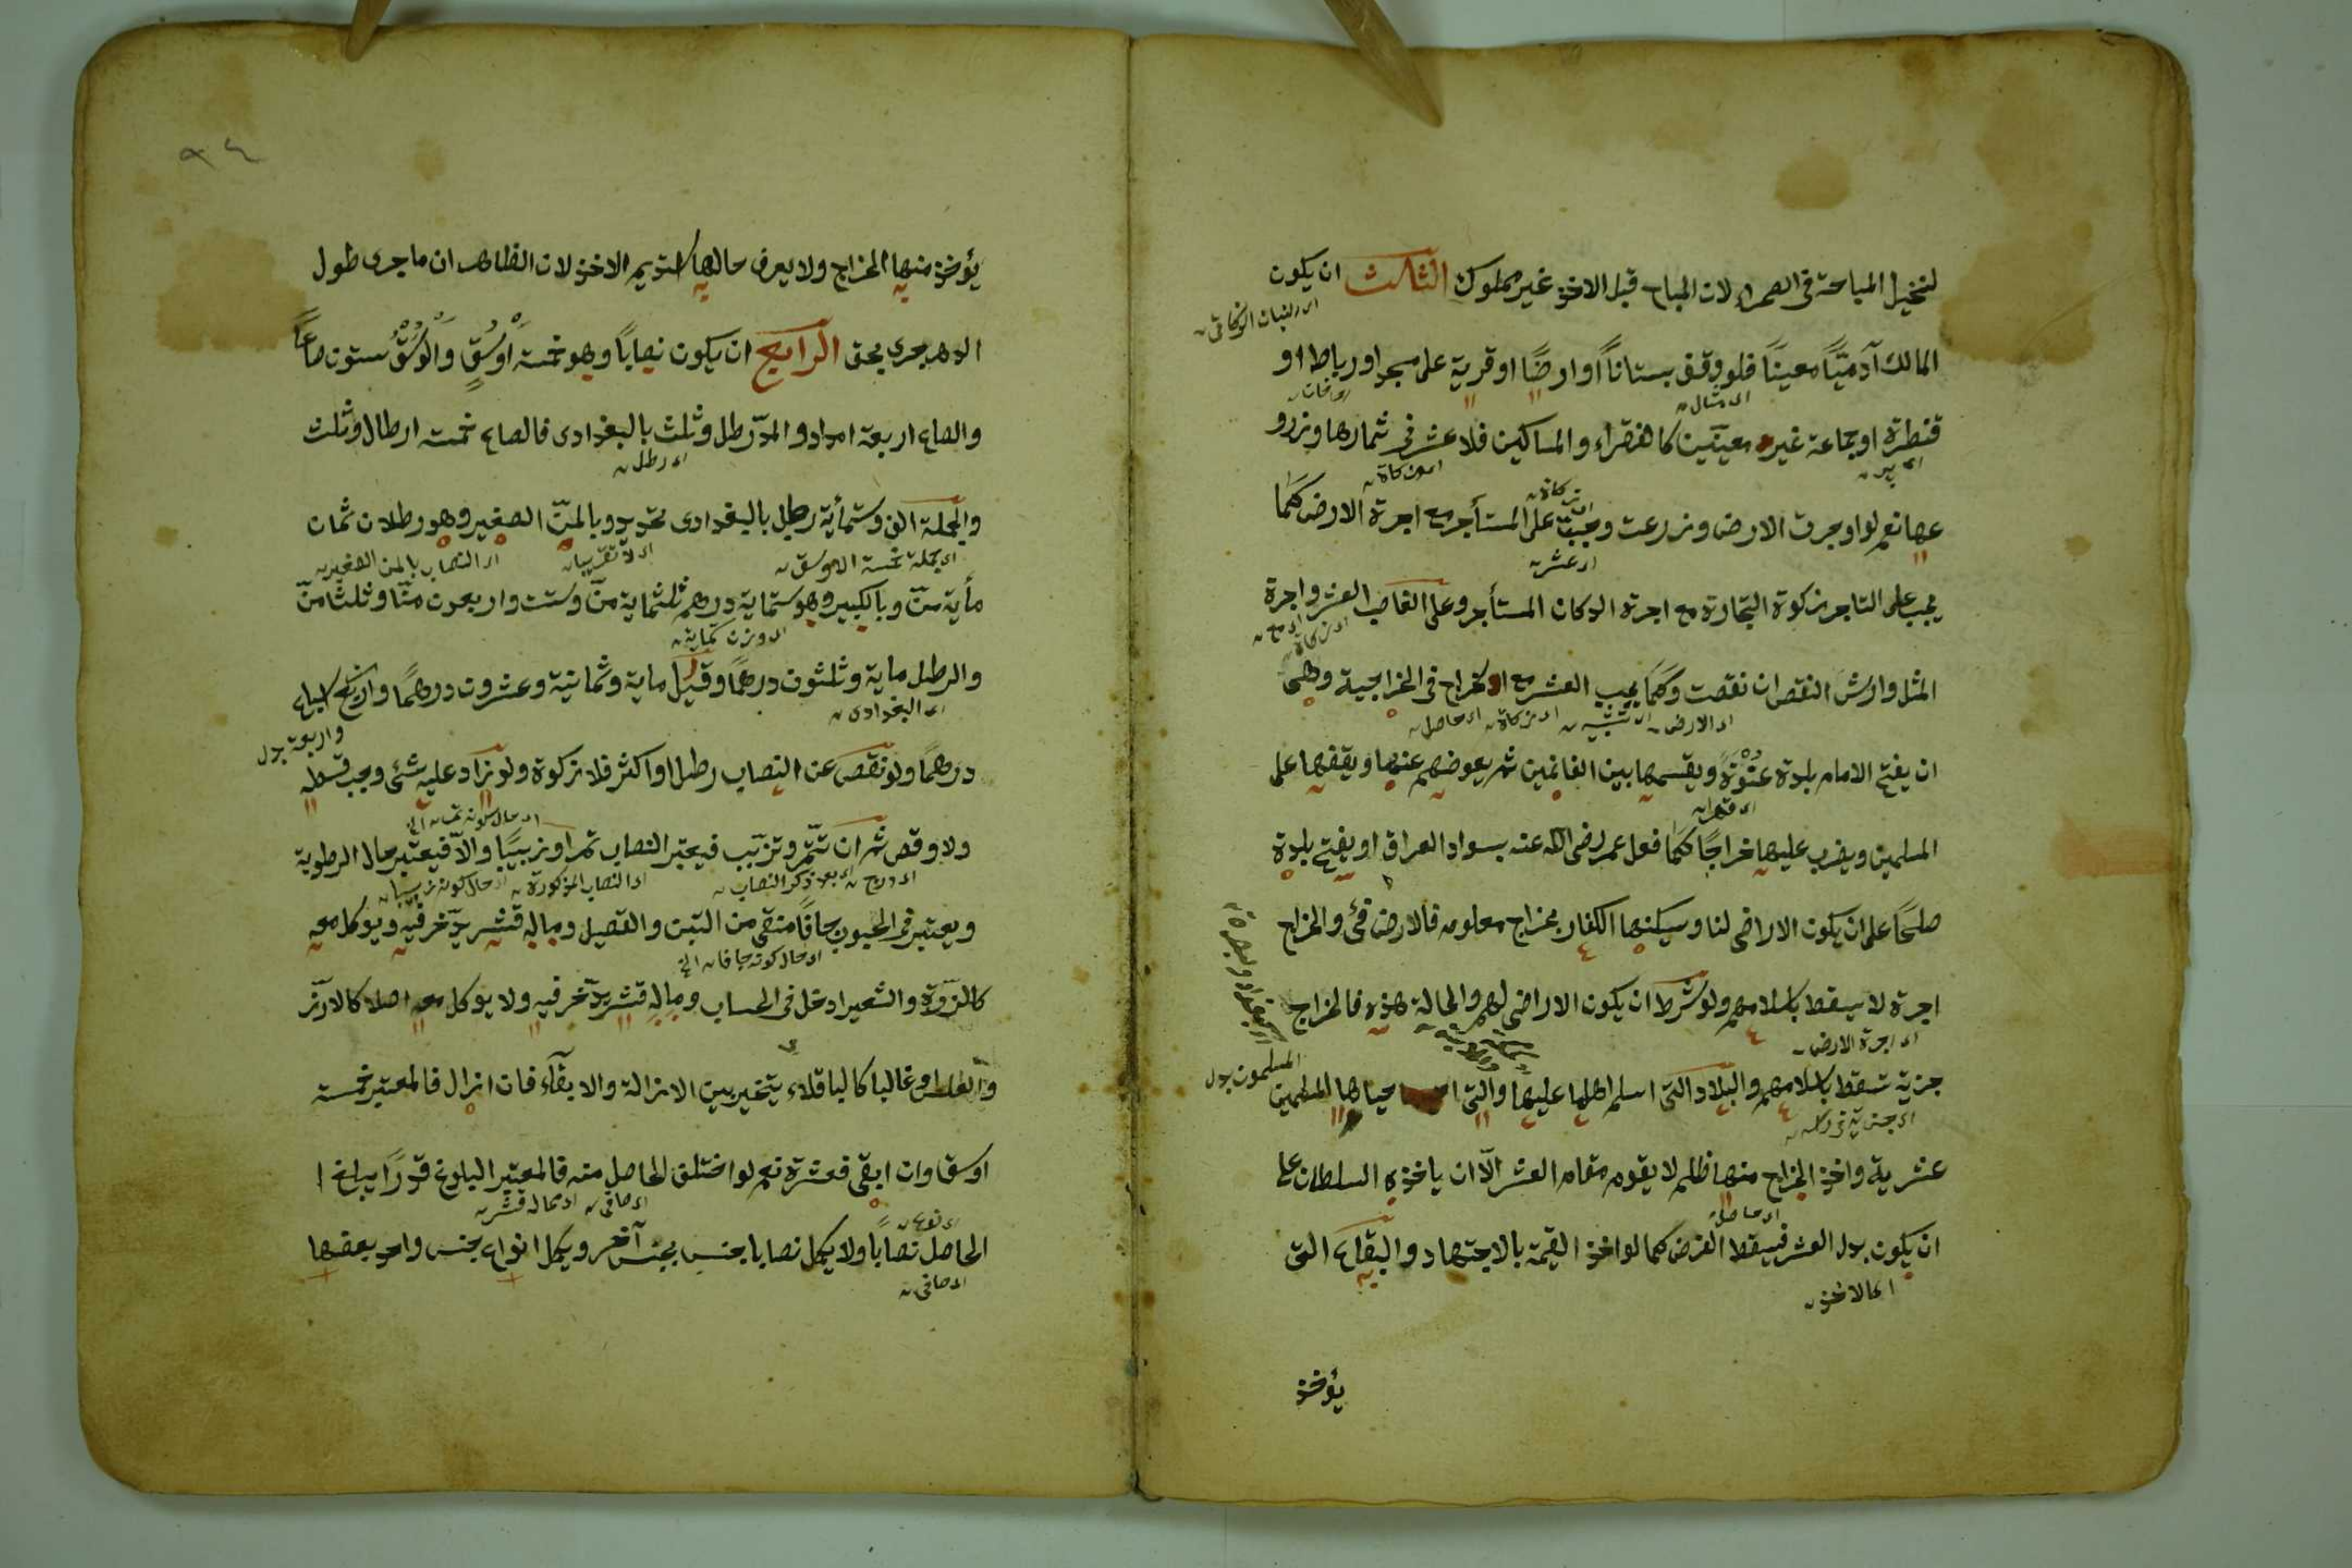 لنخيل المباحة فى الصحراء لان المباح قبل الاخذ غير مملوك الثالث ان يكون
المالك آدميًّا معينًا فلو وقف بستانًا او ارضًا او قرية على مسجد او رباط او
اى مثال
قنطرة او جماعة غير معينين كالفقراء والمساكين فلا عشر فى ثمارها وزرو
عها نعم لو اوجرت الارض وزرعت وجبت على المستأجر مع اجرة الارض كما
اى عشر
يجب على التاجر زكوة التجارة مع اجرة الدكان المستأجر وعلى الغاصب العشر واجرة
المثل وارش النقص ان نقصت وكما يجب العشر مع الخراج فى الخراجية وهى
اى الارض اى زكاة اى حاصل
ان يفتح الامام بلدة عنوة ويقسمها بين الغانمين ثم يعوضهم عنها ويقفها على
اى قهرا
المسلمين ويضرب عليها خراجًا كما فعل عمر رضى الله عنه بسواد العراق او يفتح بلدة
صلحًا على ان يكون الاراضى لنا وسيكنها الكفار بخراج معلوم فالارض فئ والخراج
اجرة لا يسقط باسلامهم ولو شرط ان يكون الاراضى لهم والحالة هذه فالخراج
اى اجرة الارض
جزية تسقط باسلامهم والبلاد التى اسلم اهلها عليها والتى احياها المسلمين
المسلمون بدل
عشرية واخذ الخراج منها ظلم لا يقوم مقام العشر الّا ان ياخذه السلطان على
اى حاصل
ان يكون بدل العشر فيسقط الفرض كما لو اخذ القيمة بالاجتهاد والبقاع التى
اى الاخذ
يؤخذ
٩٤
يؤخذ منها الخراج ولا يعرف حالها تستديم الاخذ لان الظاهر ان ما جرى طول
الدهر يجرى بحق الرابع ان يكون نصابًا وهو خمسة أوسُقٍ والوَسْقُ ستون صاعًا
والصاع اربعة امداد والمدّ رطل وثلث بالبغدادى فالصاع خمسة ارطال وثلث
اى رطل
والجملة الف وستمأية رطل بالبغدادى تحديد وبالمنّ الصغير وهو رطلان ثمان
اى جملة خمسة الاوسق اى لا تقريبا اى النصاب بالمن الصغير
مأية منّ وبالكبير وهو ستماية درهم ثلثماية منّ وست واربعون منّا وثلثا منّ
والرطل ماية وثلثون درهمًا وقيل ماية وثمانية وعشرون درهمًا واربع اسباع
اى البغدادى
واربعة بدل
درهمًا ولو نقص عن النصاب رطل او اكثر فلا زكوة ولو زاد عليه شئ وجب قسطه
ولا وقص ثم ان تتمّر وتزبّب فيعتبر النصاب تمرا وزبيبًا والّا فيعتبر حال الرطوبة
اى بعد ذكر النصاب اى النصاب المذكورة اى حال كونه زبيبا
ويعتبر فى الحبوب جافًا منقى من التبن والقصيل وماله قشر يدّخر فيه ويوكل معه
اى حال كونه جافا الخ
كالذرة والشعير ادخل فى الحساب وماله قشر يدّخر فيه ولا يوكل معه اصلا كالارز
والعلس او غالبا كالباقلاء يتخير بين الازالة والابقاء فان ازال فالمعتبر خمسة
اوسق وان ابقى فعشرة نعم لو اختلف الحاصل منه فالمعتبر البلوغ قدرًا يبلغ ا
اى صافى
الحاصل نصابًا ولا يكمل نصابا بجنس بجنس آخر ويكمل انواع جنس واحد بعضها
اى صافى